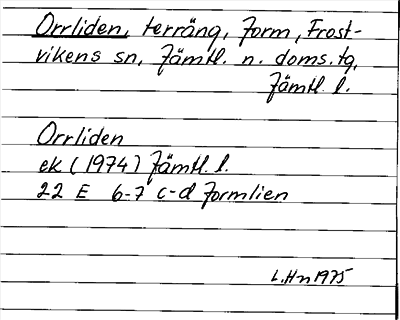 Orrliden, terräng, Form, Frost-
vikens sn, Jämtl. n. doms.tg,
Jämtl. l.
Orrliden
ek (1974) Jämtl. l.
22 E 6-7 c-d Formlien
L.Hn 1975